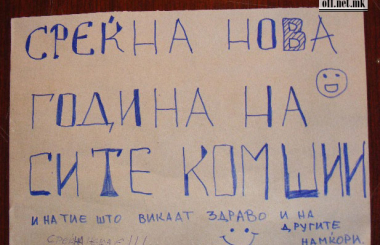 off.net.mk
СРЕЌНА НОВА
ГОДИНА НА
СИТЕ КОМШИИ
И НА ТИЕ ШТО ВИКААТ ЗДРАВО И НА
ДРУГИТЕ
НАМКОРИ